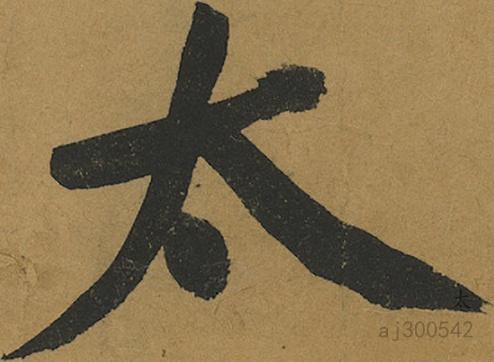 太
太
aj300542